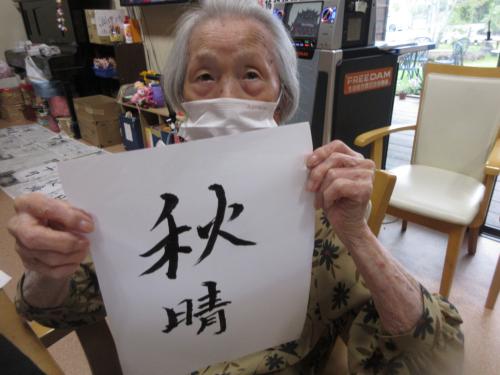 秋
晴
FREEDAM